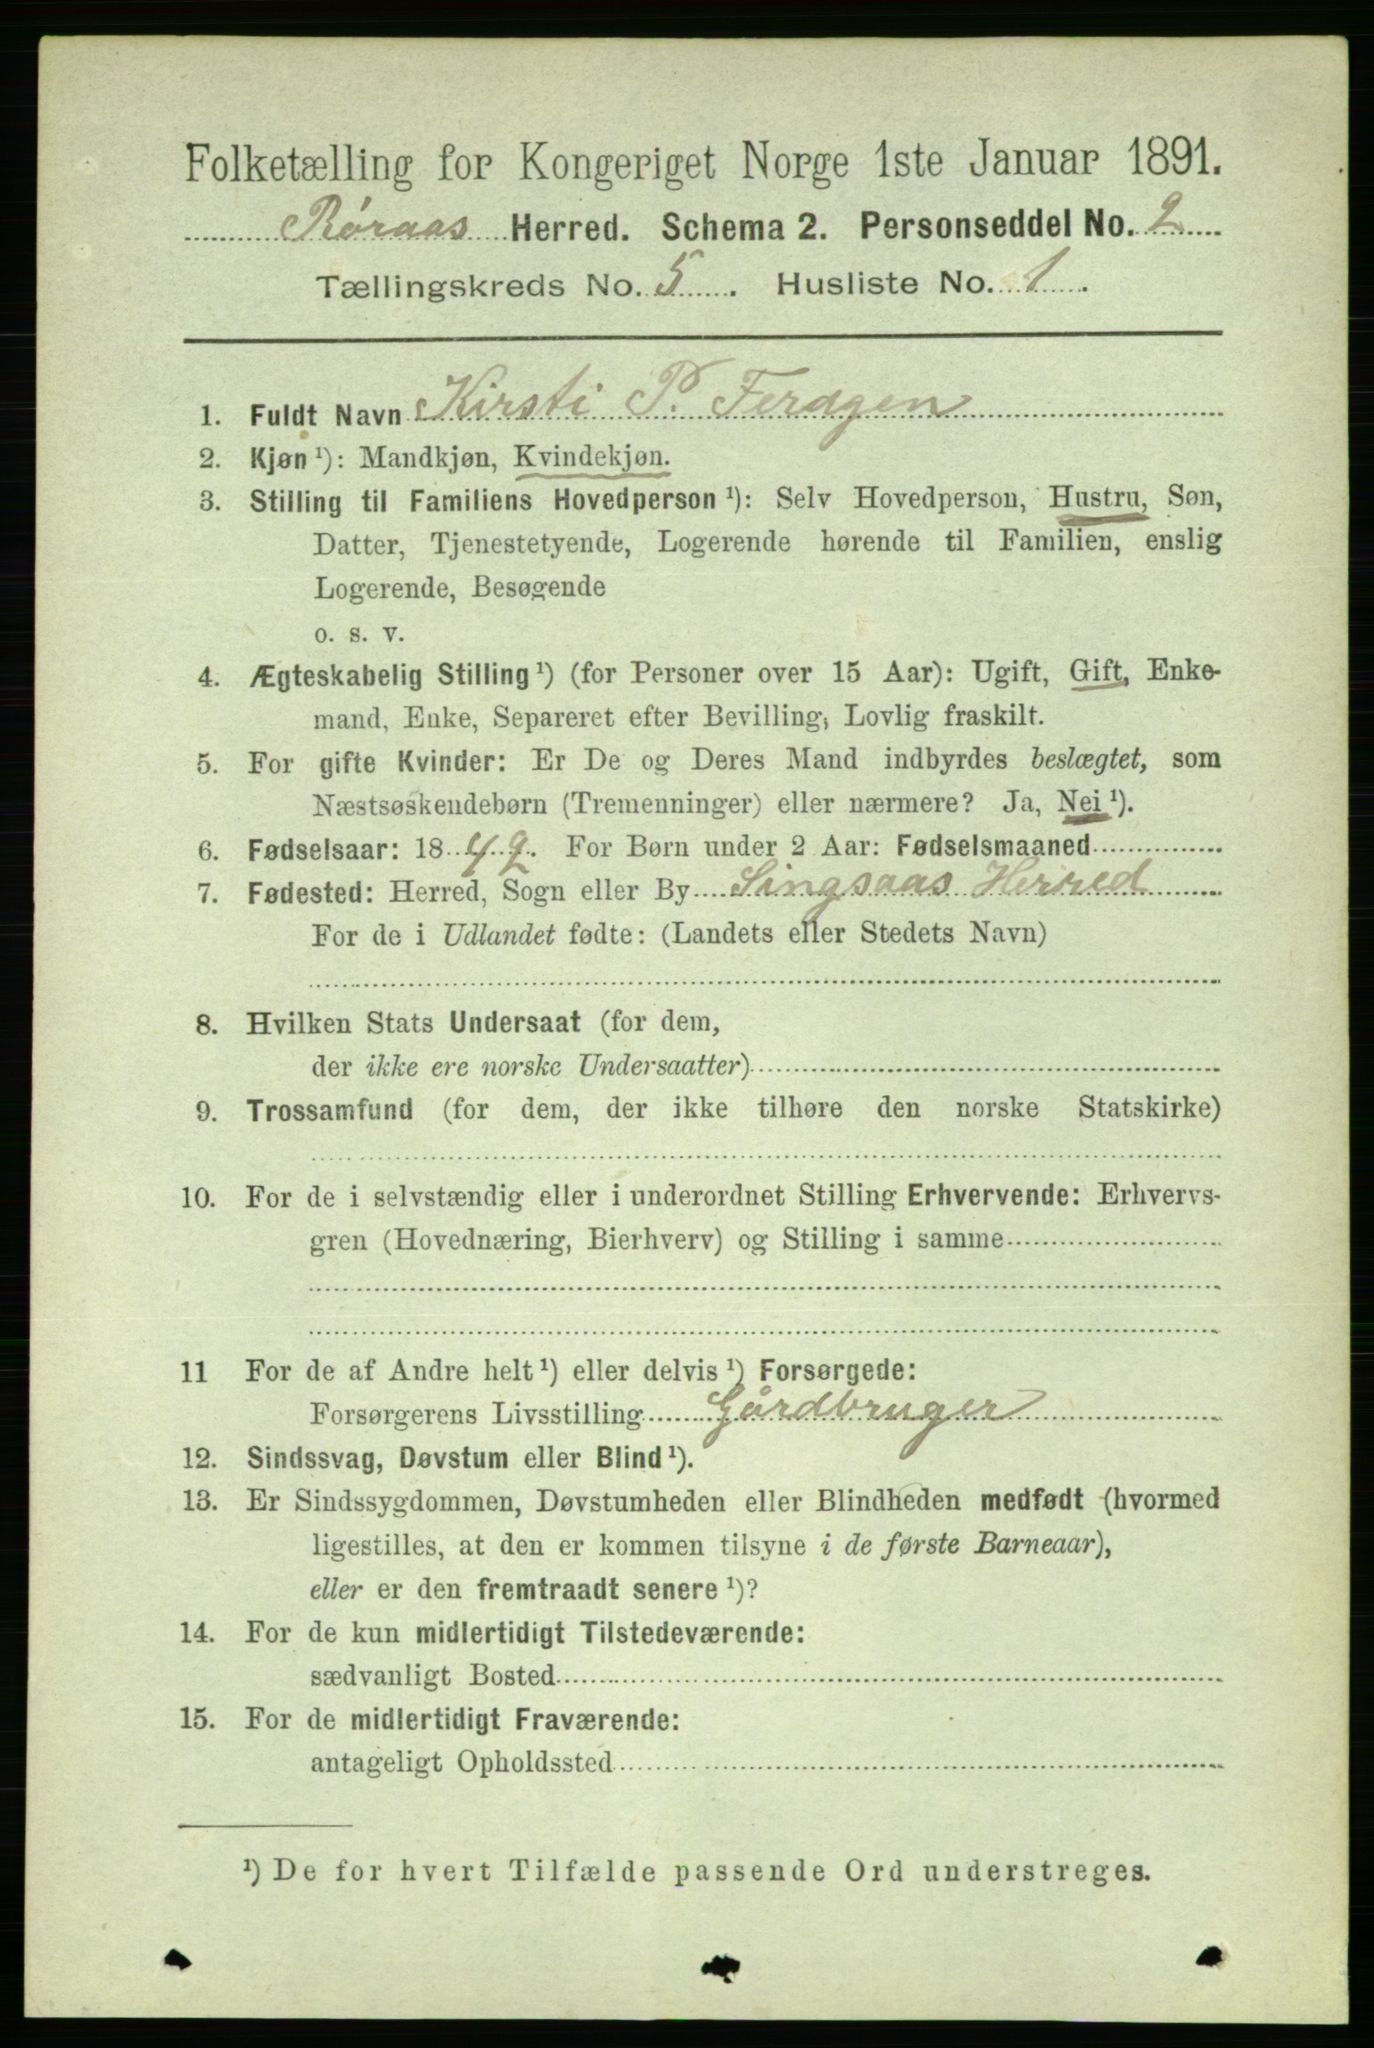 Folketælling for Kongeriget Norge 1ste Januar 1891.
Røraas Herred. Schema 2. Personseddel No. 2
Tællingskreds No. 5. Husliste No. 1.
1. Fuldt Navn Kirsti P. Feragen
2. Kjøn ¹): Mandkjøn, Kvindekjøn.
3. Stilling til Familiens Hovedperson ¹): Selv Hovedperson, Hustru, Søn,
Datter, Tjenestetyende, Logerende hørende til Familien, enslig
Logerende, Besøgende
o. s. v.
4. Ægteskabelig Stilling ¹) (for Personer over 15 Aar): Ugift, Gift, Enke-
mand, Enke, Separeret efter Bevilling, Lovlig fraskilt.
5. For gifte Kvinder: Er De og Deres Mand indbyrdes beslægtet, som
Næstsøskendebørn (Tremenninger) eller nærmere? Ja, Nei ¹).
6. Fødselsaar: 1849. For Børn under 2 Aar: Fødselsmaaned
7. Fødested: Herred, Sogn eller By Singsaas Herred
For de i Udlandet fødte: (Landets eller Stedets Navn)
8. Hvilken Stats Undersaat (for dem,
der ikke ere norske Undersaatter)
9. Trossamfund (for dem, der ikke tilhøre den norske Statskirke)
10. For de i selvstændig eller i underordnet Stilling Erhvervende: Erhvervs-
gren (Hovednæring, Bierhverv) og Stilling i samme
11 For de af Andre helt ¹) eller delvis ¹) Forsørgede:
Forsørgerens Livsstilling Gårdbruger
12. Sindssvag, Døvstum eller Blind ¹).
13. Er Sindssygdommen, Døvstumheden eller Blindheden medfødt (hvormed
ligestilles, at den er kommen tilsyne i de første Barneaar),
eller er den fremtraadt senere ¹)?
14. For de kun midlertidigt Tilstedeværende:
sædvanligt Bosted
15. For de midlertidigt Fraværende:
antageligt Opholdssted
¹) De for hvert Tilfælde passende Ord understreges.